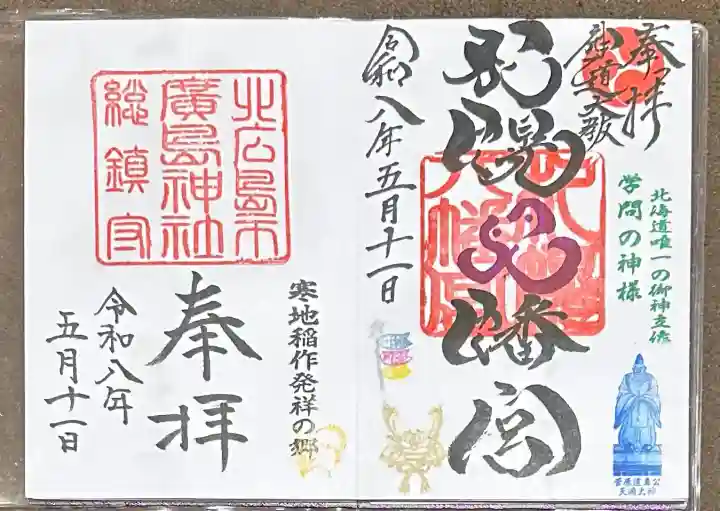 奉拝
北海道唯一の御神立像
学問の神様
菅原道真公
天満大神
札幌八幡宮
令和八年五月十一日
寒地稲作発祥の郷
北広島市
廣島神社
総鎮守
奉拝
令和八年
五月十一日